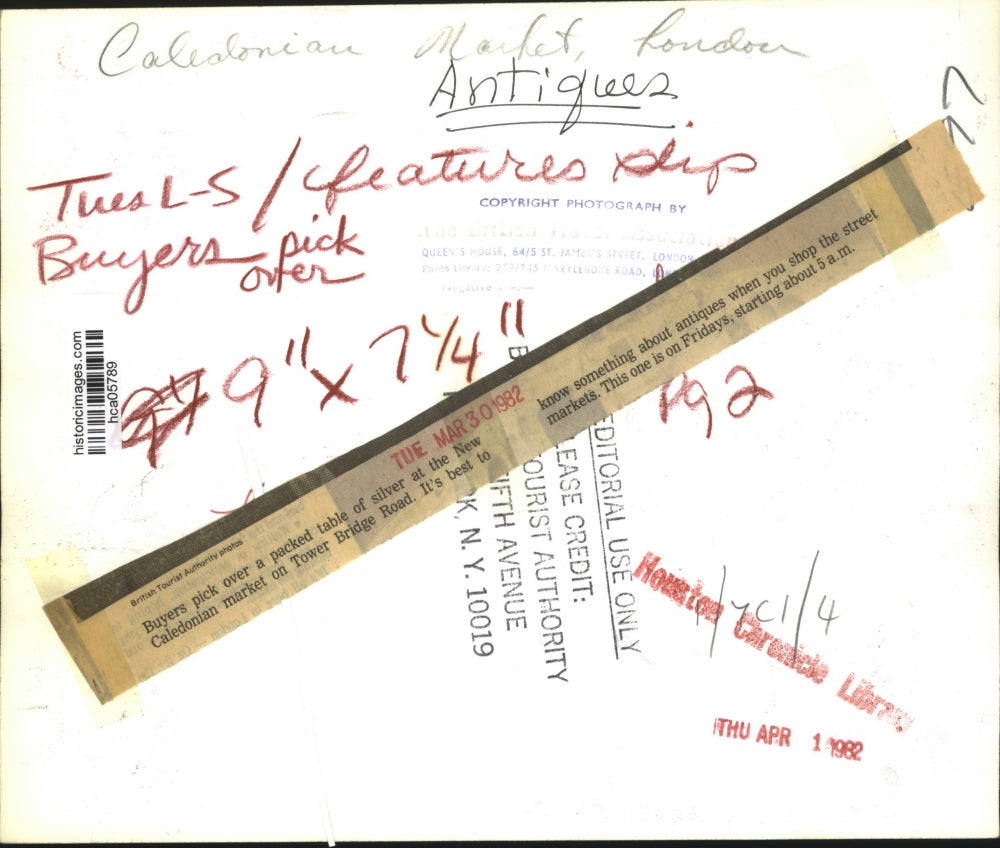 Caledonian Market, London
Antiques
Tues L-S / features slip
Buyers pick
over
COPYRIGHT PHOTOGRAPH BY
The British Travel Association
QUEEN'S HOUSE, 64/5 ST. JAMES'S STREET, LONDON
Photo Library: 239/243 MARYLEBONE ROAD,
9" x 7 1/4"
pg 2
historicimages.com
hca05789
TUE MAR 30 1982
British Tourist Authority photos
Buyers pick over a packed table of silver at the New
Caledonian market on Tower Bridge Road. It's best to
know something about antiques when you shop the street
markets. This one is on Fridays, starting about 5 a.m.
EDITORIAL USE ONLY
EASE CREDIT:
OURIST AUTHORITY
IFTH AVENUE
K, N.Y. 10019
Houston Chronicle Library
THU APR 1 1982